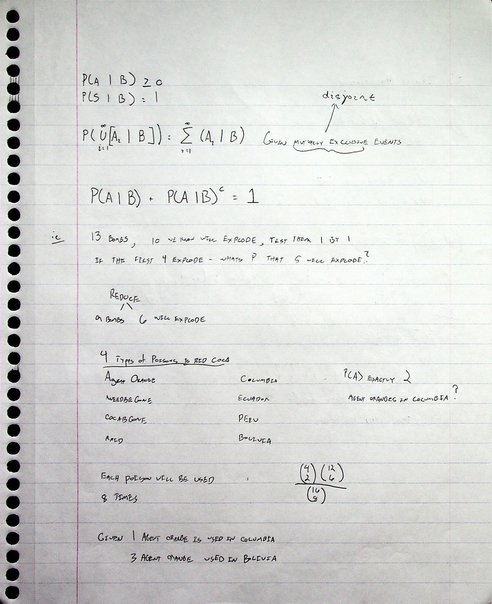 P(A | B) ≥ 0
P(S | B) = 1
disjoint
P(∪[A₂ | B]) = Σ (A₁ | B) Given mutually exclusive events
∞ i=1 ∞ i=1
P(A | B) + P(A | B)ᶜ = 1
ie 13 Bombs, 10 will explode, test them 1 by 1
If the first 4 explode - whats P that 5 will explode?
Reduce
9 Bombs 6 will explode
4 Types of Poisons is Red Coca
Agent Orange Columbia P(A) exactly 2
Ecuador Agent oranges in Columbia?
Peru
Acid Bolivia
Each poison will be used (4 2) (12 6)
8 times (16 8)
Given 1 Agent orange is used in Columbia
3 Agent orange used in Bolivia